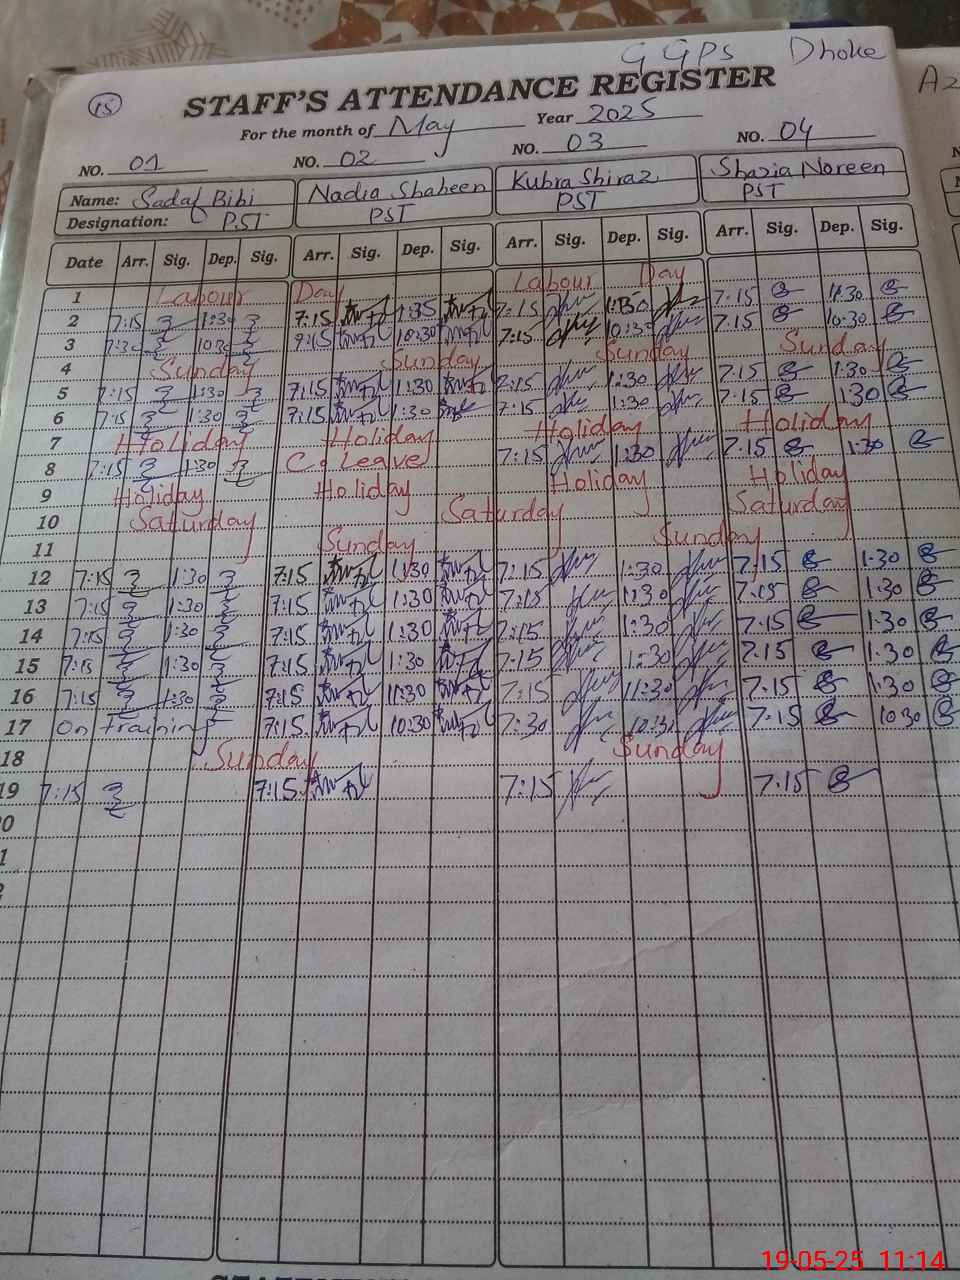 G GPS Dhoke
15
STAFF'S ATTENDANCE REGISTER
For the month of May Year 2025
NO. 01 NO. 02 NO. 03 NO. 04
Name: Sadaf Bibi Nadia Shaheen Kubra Shiraz Shazia Noreen
Designation: PST PST PST PST
Date Arr. Sig. Dep. Sig. Arr. Sig. Dep. Sig. Arr. Sig. Dep. Sig. Arr. Sig. Dep. Sig.
1 Labour Day Labour Day
2 7:15 1:30 7:15 1:35 7:15 7:15 11:30
3 7:30 10:30 10:30 7:15 10:30 7:15 10:30
4 Sunday Sunday Sunday Sunday
5 7:15 1:30 7:15 1:30 7:15 1:30 7:15 1:30
6 7:15 1:30 7:15 1:30 7:15 1:30 7:15 1:30
7 Holiday Holiday Holiday Holiday
8 7:15 1:30 C. Leave 7:15 1:30 7:15 1:30
9 Holiday Holiday Holiday Holiday
10 Saturday Saturday Saturday
11 Sunday Sunday
12 7:15 1:30 7:15 1:30 7:15 1:30 7:15 1:30
13 7:15 1:30 7:15 1:30 7:15 1:30 7:15 1:30
14 7:15 1:30 7:15 1:30 7:15 1:30 7:15 1:30
15 7:15 1:30 7:15 1:30 7:15 1:30 7:15 1:30
16 7:15 1:30 7:15 11:30 7:15 11:30 7:15 1:30
17 On training 7:15 10:30 7:30 10:30 7:15 10:30
18 Sunday Sunday
19 7:15 7:15 7:15 7:15
19-05-25 11:14